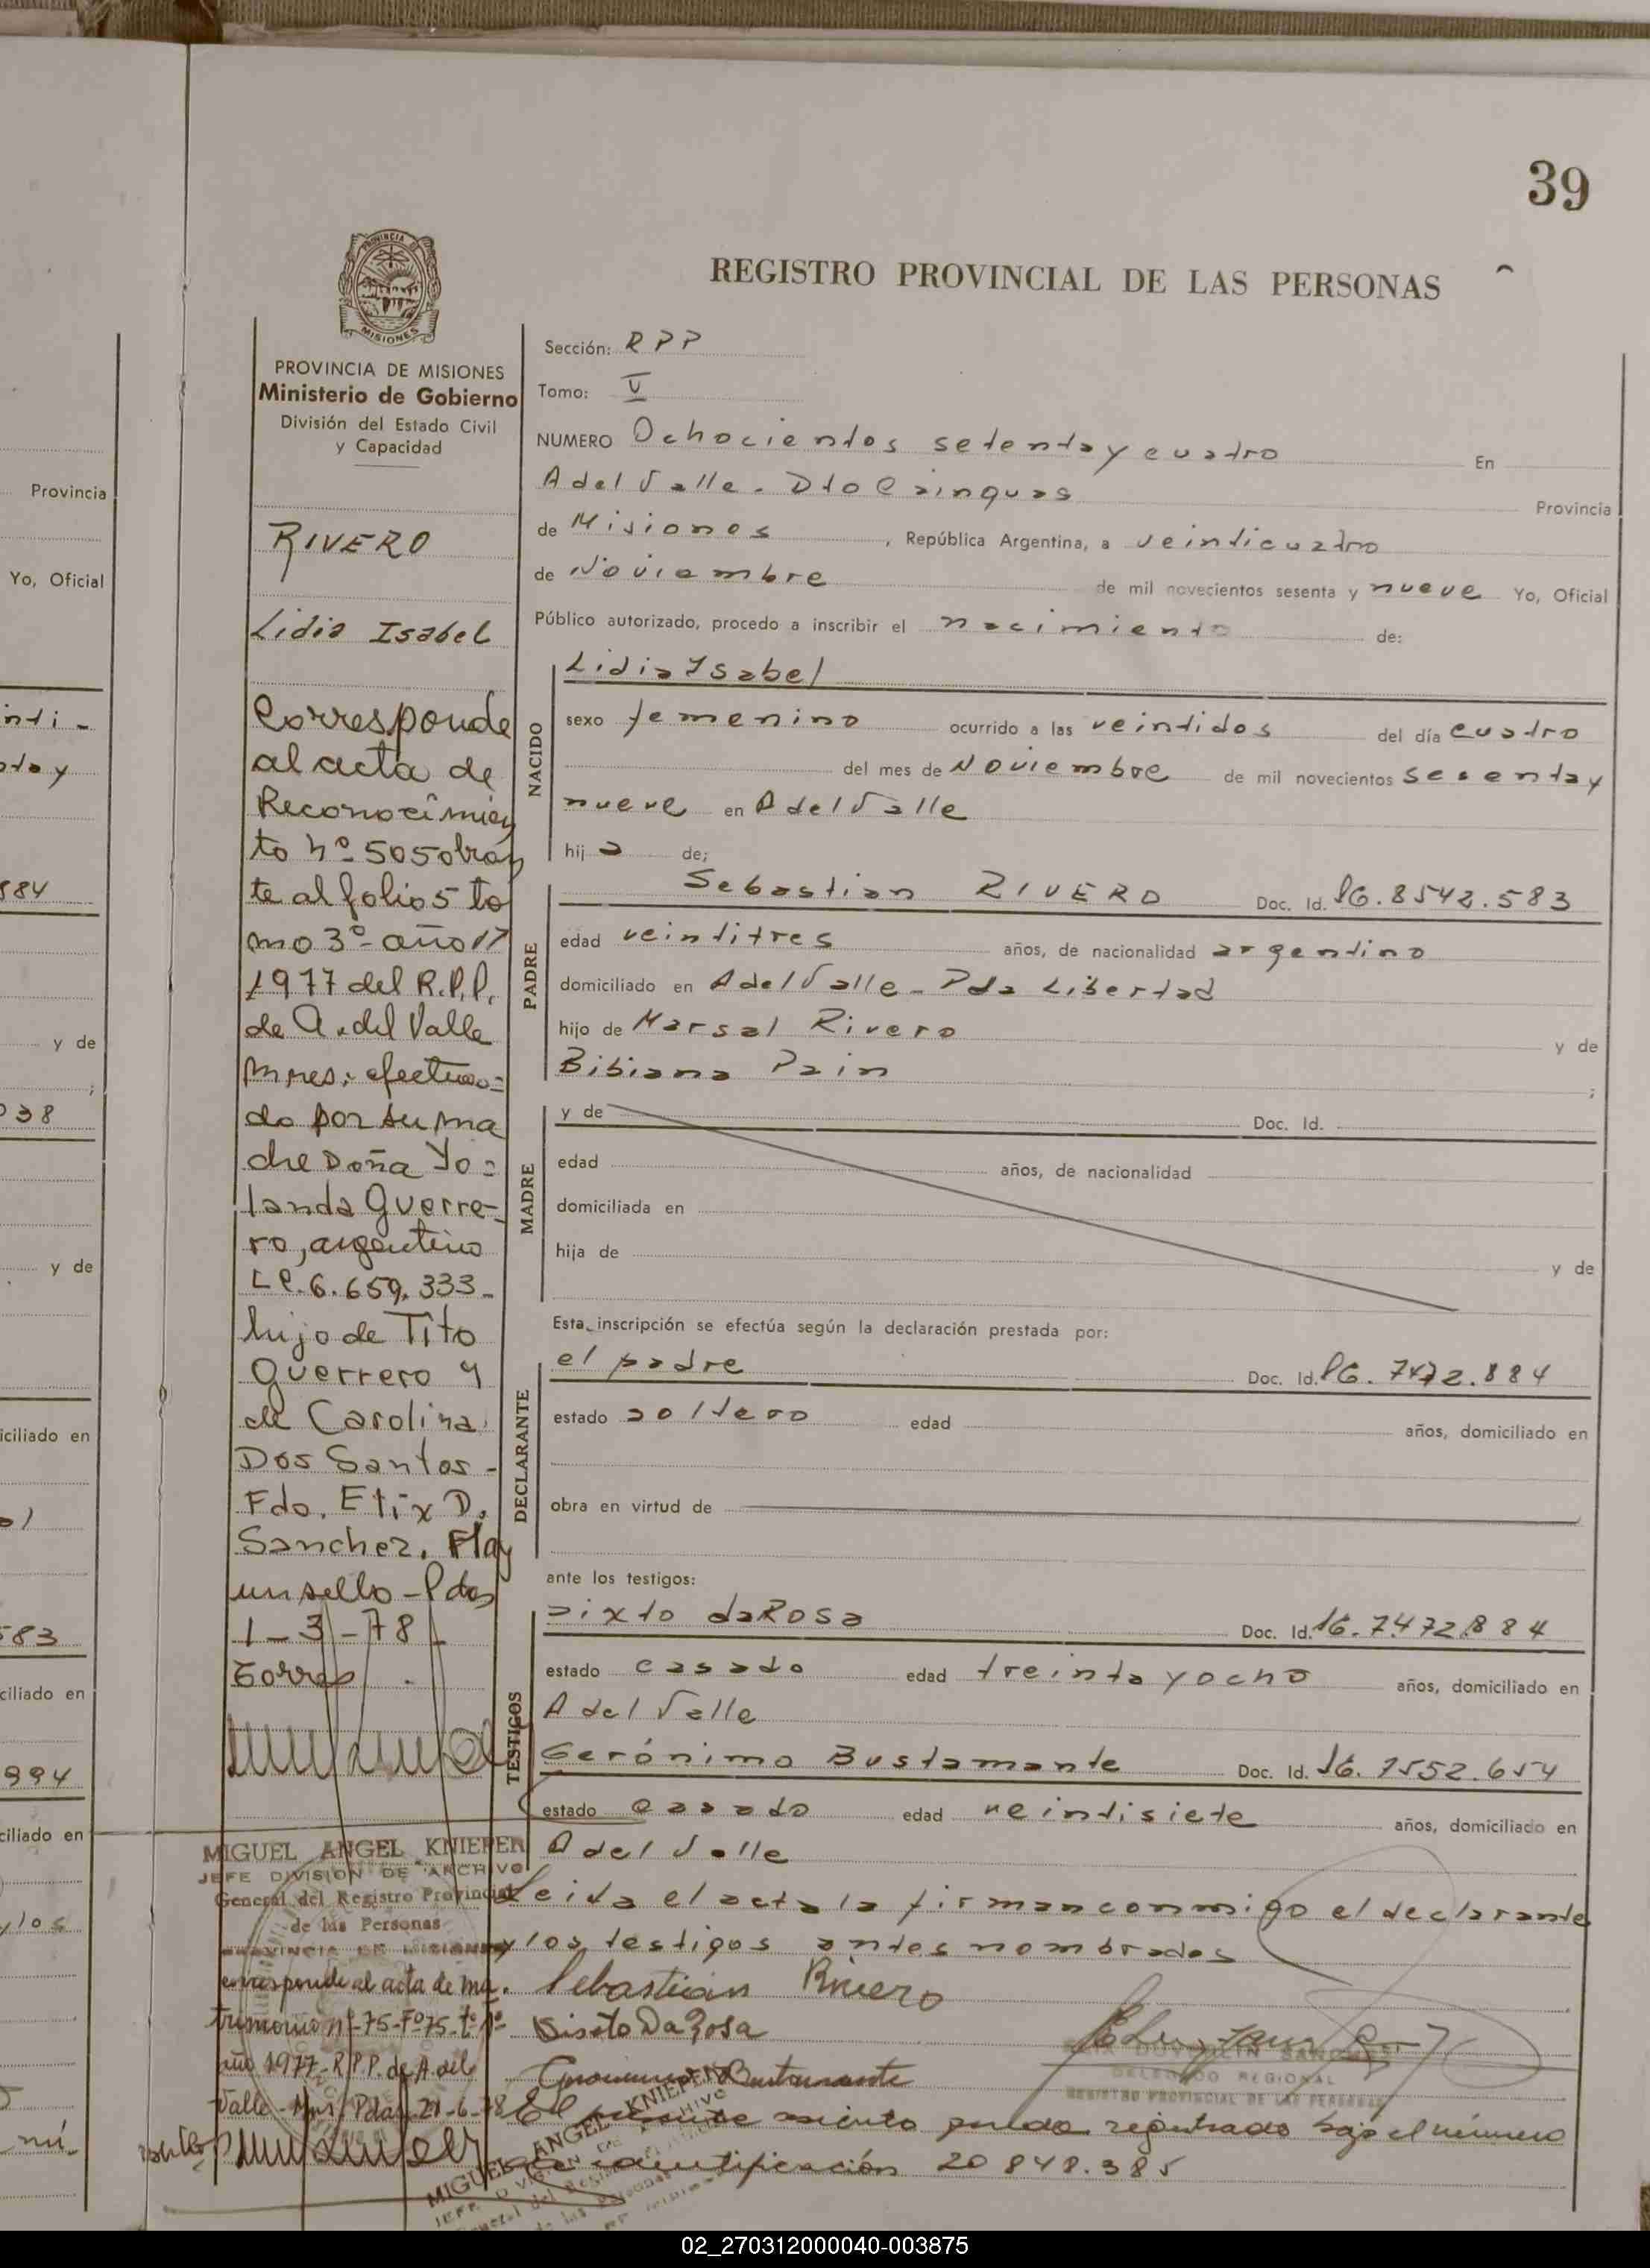 39
REGISTRO PROVINCIAL DE LAS PERSONAS
PROVINCIA DE MISIONES
PROVINCIA DE MISIONES
Ministerio de Gobierno
División del Estado Civil
y Capacidad
RIVERO
Lidia Isabel
Corresponde
al acta de
Reconocimien
to nº 505 obran
te al folio 5 to
mo 3º año 17
1977 del R.P.P.
de A. del Valle
Mnes. efectua=
do por su ma
dre Doña Yo=
landa Guerre-
ro, argentino
L.C. 6.659.333-
hijo de Tito
Guerrero y
de Carolina
Dos Santos-
Fdo. Etix D.
Sanchez. Hay
un sello - Pdas
1-3-78-
Torres.
MIGUEL ANGEL KNIEPER
JEFE DIVISION DE ARCHIVO
General del Registro Provincial
de las Personas
PROVINCIA DE MISIONES
corresponde al acta de ma.
trimonio nº 75-Fº75-tº1º
año 1977-R.P.P. de A. del
Valle-Mnes. Pdas. 21-6-78
Sección: RPP
Tomo: V
NUMERO Ochocientos setenta y cuatro En
A del Valle - Dto Cainguas Provincia
de Misiones, República Argentina, a veinticuatro
de Noviembre de mil novecientos sesenta y nueve Yo, Oficial
Público autorizado, procedo a inscribir el nacimiento de:
NACIDO
Lidia Ysabel
sexo femenino ocurrido a las veintidos del día cuatro
del mes de Noviembre de mil novecientos sesenta y
nueve en A del Valle
hija de;
PADRE
Sebastian RIVERO Doc. Id. 16.8542.583
edad veintitres años, de nacionalidad argentino
domiciliado en A del Valle - Pda Libertad
hijo de Marsal Rivero y de
Bibiana Pain ;
MADRE
y de Doc. Id.
edad años, de nacionalidad
domiciliada en
hija de y de
Esta inscripción se efectúa según la declaración prestada por:
DECLARANTE
el padre Doc. Id. 16.7472.884
estado soltero edad años, domiciliado en
obra en virtud de
ante los testigos:
TESTIGOS
Sixto daRosa Doc. Id. 16.7472.884
estado casado edad treinta y ocho años, domiciliado en
A del Valle
Gerónimo Bustamante Doc. Id. 16.7552.654
estado casado edad veintisiete años, domiciliado en
A del Valle
Leida el acta la firman conmigo el declarante
y los testigos antes nombrados
Sebastian Rivero
Sisto Da Rosa
Geronimo Bustamante
DELEGADO REGIONAL
REGISTRO PROVINCIAL DE LAS PERSONAS
El presente asiento queda registrado bajo el número
de identificación 20848.385
MIGUEL ANGEL KNIEPER
Provincia
Yo, Oficial
inti-
nta y
884
y de
038
y de
iciliado en
583
ciliado en
994
ciliado en
y los
02_270312000040-003875